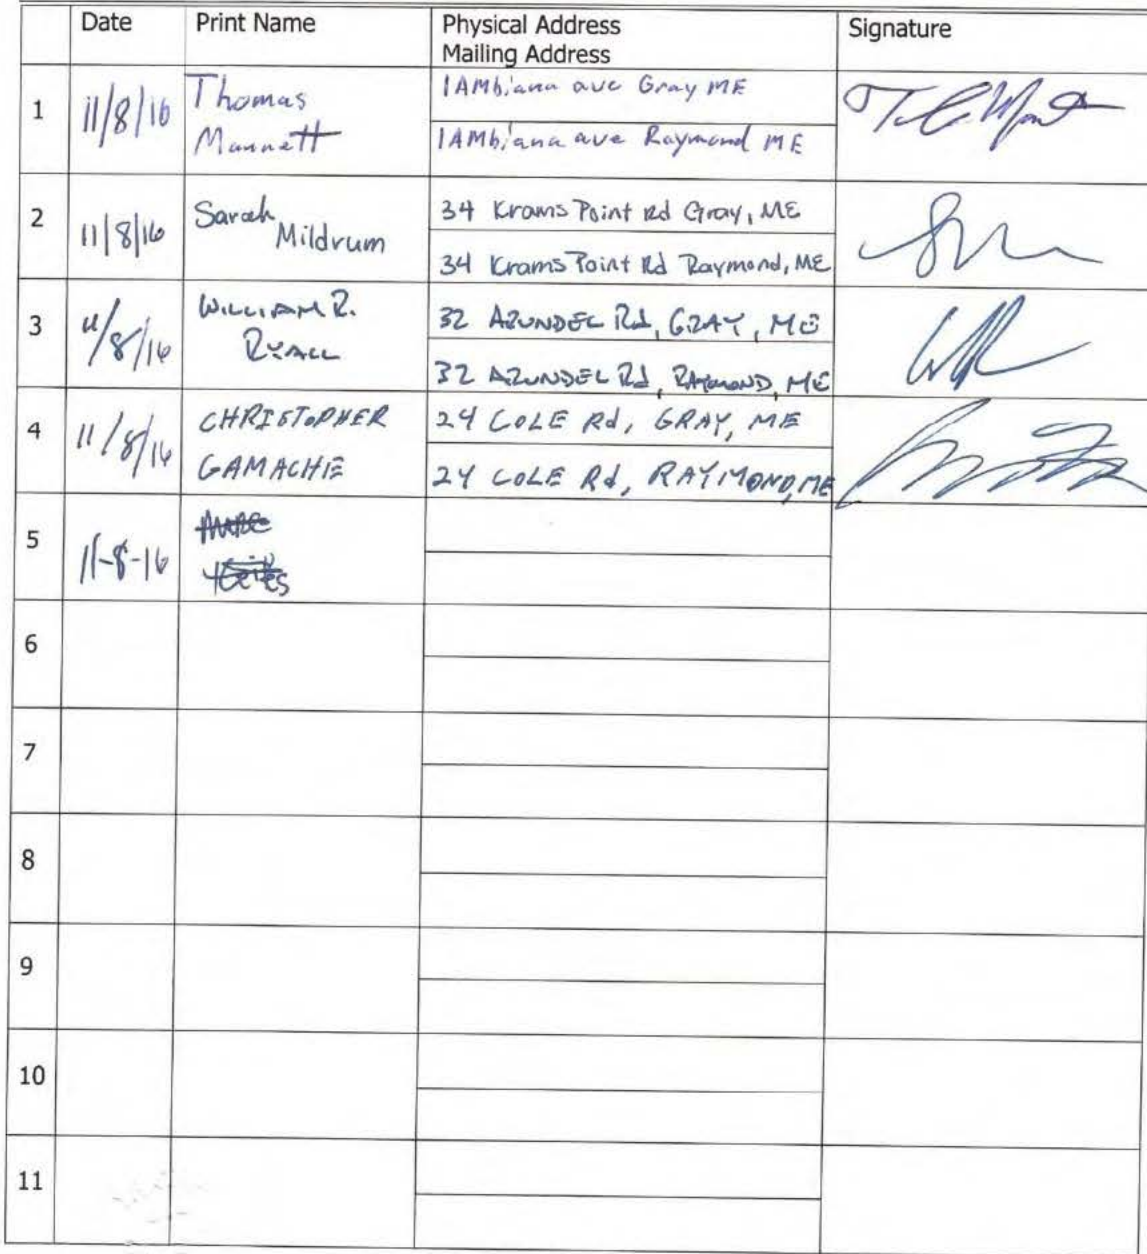 Date Print Name Physical Address Signature
Mailing Address
1 11/8/16 Thomas Mannett 1 AMbiana ave Gray ME
1 AMbiana ave Raymond ME
2 11/8/16 Sarah Mildrum 34 Krams Point Rd Gray, ME
34 Krams Point Rd Raymond, ME
3 11/8/16 WILLIAM R. RYALL 32 ARUNDEL Rd, GRAY, ME
32 ARUNDEL Rd, RAYMOND, ME
4 11/8/16 CHRISTOPHER GAMACHE 24 COLE Rd, GRAY, ME
24 COLE Rd, RAYMOND, ME
5 11-8-16
6
7
8
9
10
11